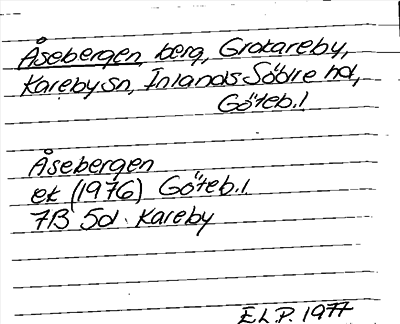 Åsebergen, berg, Grokareby,
Kareby sn, Inlands Södre hd,
Göteb. l
Åsebergen
ek (1976) Göteb. l
7B 5d Kareby
E L P. 1977